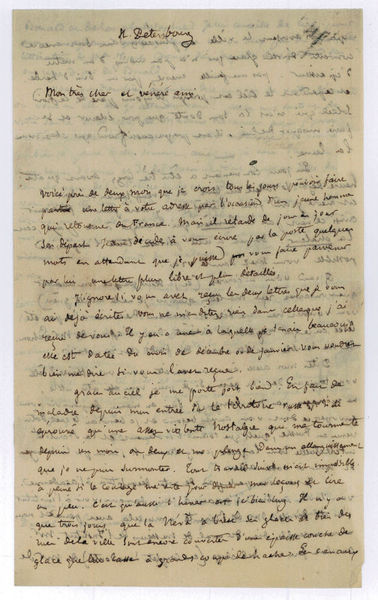 St Petersbourg
Mon très cher et vénéré ami,
Voici près de deux mois que je crois tous les jours pouvoir faire
partir une lettre à votre adresse par l'occasion d'un jeune homme
qui retourne en France. Mais il retarde de jour en jour
son départ. Je me décide à vous écrire par la poste quelques
mots en attendant que je puisse vous faire parvenir
par lui une lettre plus libre et plus détaillée.
J'ignore si vous avez reçu les deux lettres que je vous
ai déjà écrites. Vous ne m'en dites rien dans celles que j'ai
reçues de vous. Il y en a une à laquelle je tenais beaucoup
elle est datée du mois de décembre ou de janvier vous voudrez
bien me dire si vous l'avez reçue.
Grâce au ciel je me porte fort bien. En fait de
maladie depuis mon entrée sur le territoire russe je n'ai
éprouvé qu'une assez violente nostalgie qui me tourmente
depuis un mois ou deux et me plonge dans un
que je ne puis surmonter. Tout travail suivi m'est impossible
à peine si le courage me reste pour mes leçons et lire
un peu. C'est qu'aussi l'hiver est ici bien long. Il n'y a
que trois jours que la Néva a brisé sa glace et bien des
rues de la ville sont encore couvertes d'une épaisse couche de
glace que l'on casse à grands coups de hache.